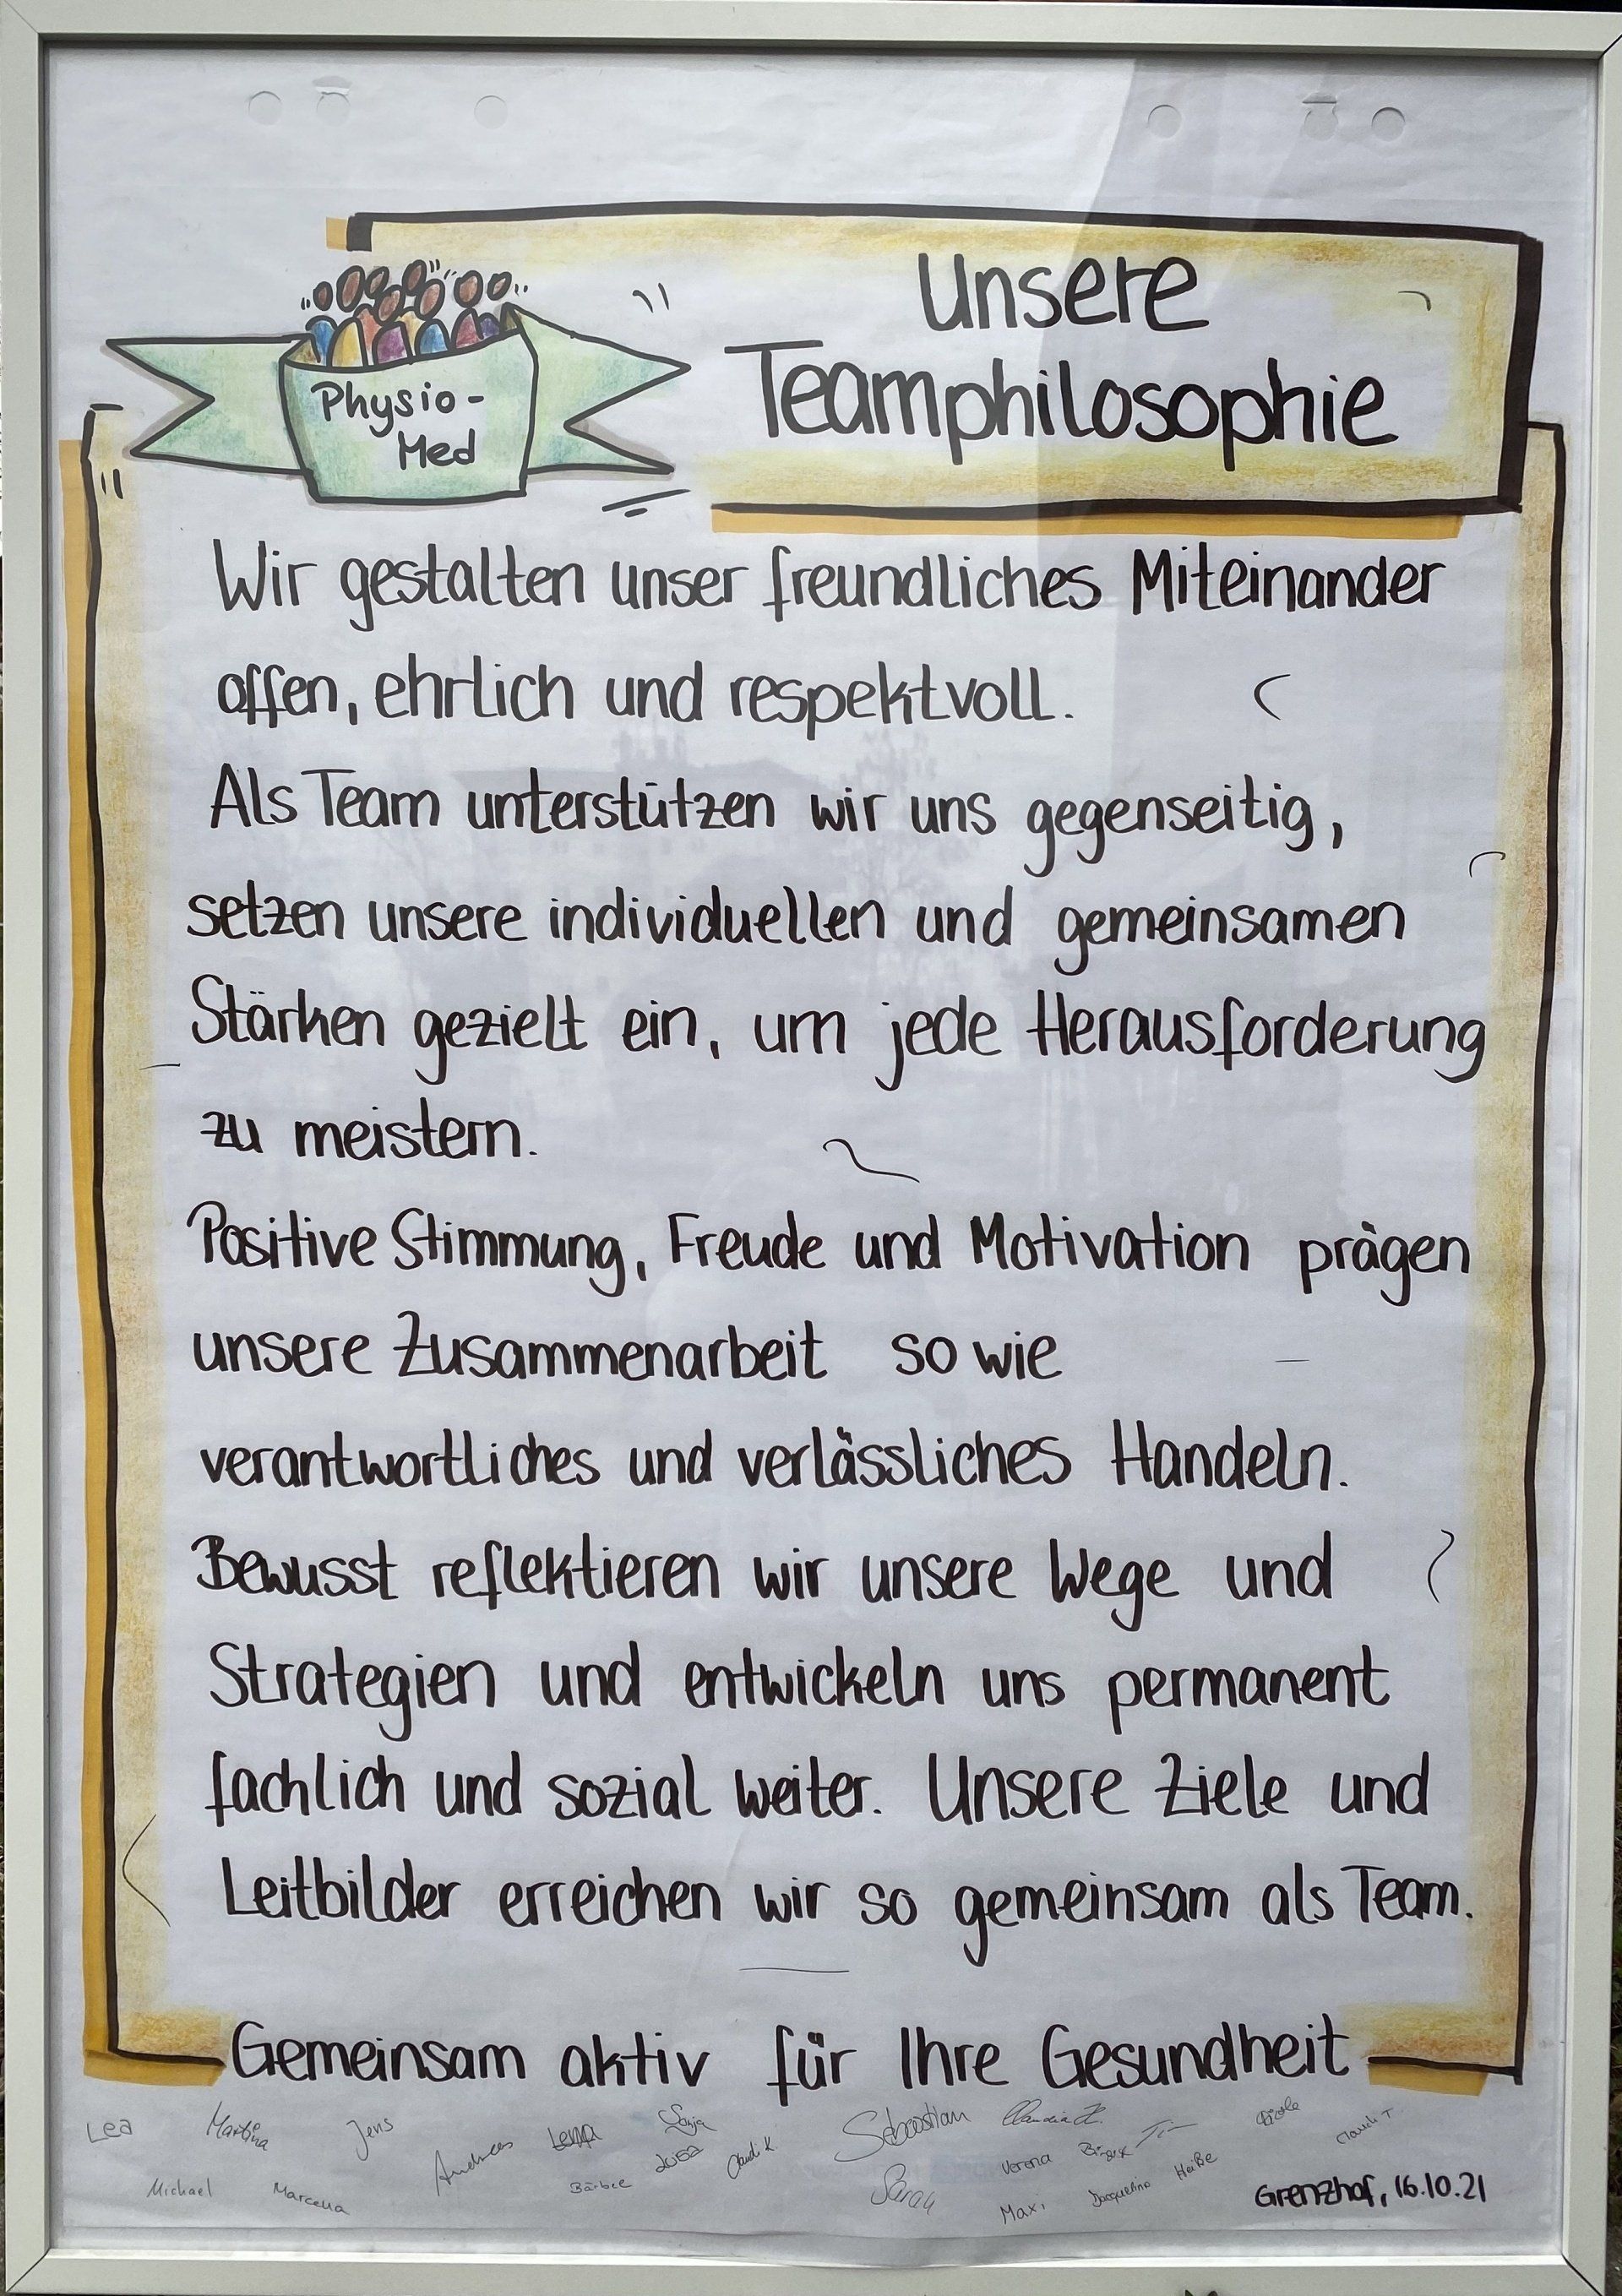 Physio-
Med
Unsere
Teamphilosophie
Wir gestalten unser freundliches Miteinander
offen, ehrlich und respektvoll.
Als Team unterstützen wir uns gegenseitig,
setzen unsere individuellen und gemeinsamen
Stärken gezielt ein, um jede Herausforderung
zu meistern.
Positive Stimmung, Freude und Motivation prägen
unsere Zusammenarbeit so wie
verantwortliches und verlässliches Handeln.
Bewusst reflektieren wir unsere Wege und
Strategien und entwickeln uns permanent
fachlich und sozial weiter. Unsere Ziele und
Leitbilder erreichen wir so gemeinsam als Team.
Gemeinsam aktiv für Ihre Gesundheit
Lea Martina Jens Andreas Lena Sonja Sebastian Claudia K.
Michael Marcella Bärbel Luisa Sarah Verona Maxi Jacqueline
Grenzhof, 16.10.21